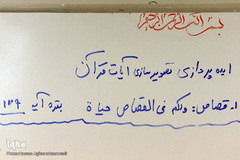 بسم الله الرحمن الرحیم
ایده پردازی تصویرسازی آیات قرآن
۱. قصاص: ولکم فی القصاص حیاة بقره آیه ۱۷۹
Iqna